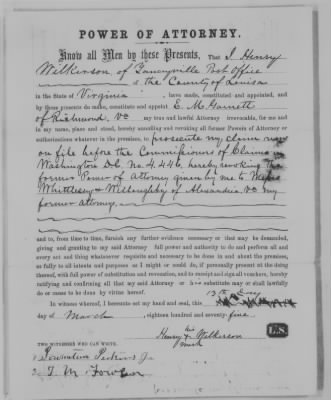 POWER OF ATTORNEY.
Know all Men by these Presents, That I Henry
Wilkinson of Yanceyville Post Office
& the County of Louisa
in the State of Virginia have made, constituted and appointed, and
by these presents do make, constitute and appoint E. M. Garnett
of Richmond, Va my true and lawful Attorney irrevocable, for me and
in my name, place and stead, hereby annulling and revoking all former Powers of Attorney or
authorizations whatever in the premises, to prosecute my claim now
on file before the Commissioners of Claims in
Washington D.C. No. 4.446, hereby revoking the
former Power of Attorney given by me to Messrs
Whittlesey & Willoughby of Alexandria, Va my
former attorney,
and to, from time to time, furnish any further evidence necessary or that may be demanded,
giving and granting to my said Attorney full power and authority to do and perform all and
every act and thing whatsoever requisite and necessary to be done in and about the premises,
as fully to all intents and purposes as I might or could do, if personally present at the doing
thereof, with full power of substitution and revocation, and to receipt and sign all vouchers, hereby
ratifying and confirming all that my said Attorney or his substitute may or shall lawfully
do or cause to be done by virtue hereof.
In witness whereof, I hereunto set my hand and seal, this 13th Day
day of March, eighteen hundred and seventy five.
his
Henry + Wilkerson
mark
L.S.
TWO WITNESSES WHO CAN WRITE.
1 Perkins Jr
2 T. M. Fowler